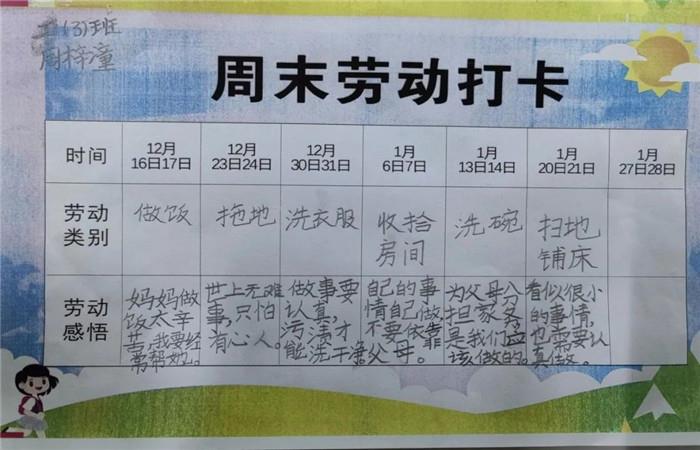 (3)班
周梓潼
周末劳动打卡
时间
12月
16日17日
12月
23日24日
12月
30日31日
1月
6日7日
1月
13日14日
1月
20日21日
1月
27日28日
劳动
类别
做饭
拖地
洗衣服
收拾
房间
洗碗
扫地
铺床
劳动
感悟
妈妈做
饭太辛
苦,我要经
常帮她。
世上无难
事,只怕
有心人。
做事要
认真,
污渍才
能洗干净。
自己的事
情自己做
不要依靠
父母。
为父母分
担家务,
是我们应
该做的。
看似很小
的事情,
也需要认
真做。